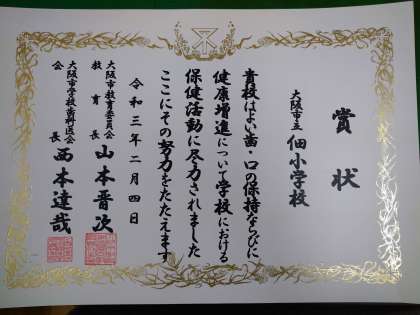 賞状
大阪市立 佃小学校
貴校はよい歯・口の保持ならびに
健康増進について学校における
保健活動に尽力されました
ここにその努力をたたえます
令和三年二月四日
大阪市教育委員会
教育長 山本晋次
大阪市学校歯科医会
会長 西本達哉